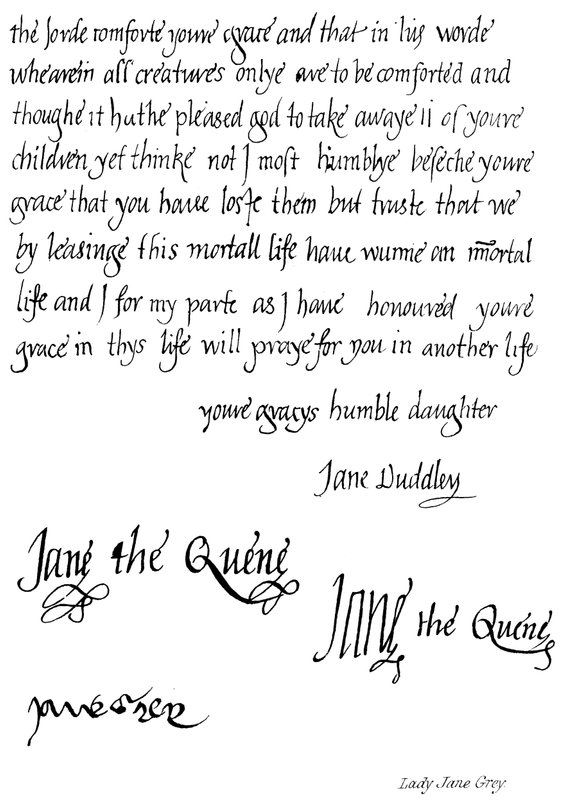 the lorde comforte youre grace and that in his worde
whearein all creatures onlye are to be comforted and
thoughe it hathe pleased god to take awaye ii of youre
children yet thinke not I most humblye beseche youre
grace that you haue loste them but truste that we
by leasinge this mortall life haue wunne an immortal
life and I for my parte as I haue honoured youre
grace in thys life will praye for you in another life
youre gracys humble daughter
Jane Duddley
Jane the Quene
Jane the Quene
Lady Jane Grey.